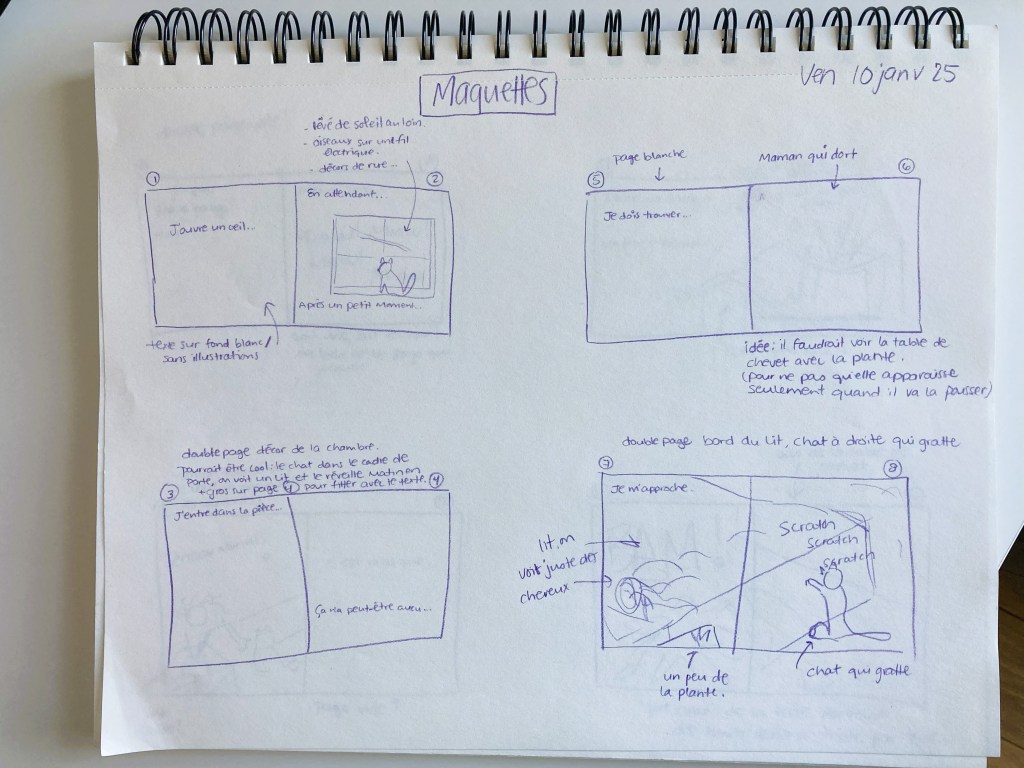 Maquettes
Ven 10 janv 25
- levé de soleil au loin.
- oiseaux sur un fil
électrique.
- décors de rue...
1
2
J'ouvre un oeil...
En attendant...
Après un petit moment...
texte sur fond blanc/
sans illustrations
page blanche
Maman qui dort
5
6
Je dois trouver...
idée: il faudrait voir la table de
chevet avec la plante.
(pour ne pas qu'elle apparaisse
seulement quand il va la pousser)
double page décor de la chambre.
pourrait être cool: le chat dans le cadre de
porte, on voit un lit et le réveille matin en
+ gros sur page 4 pour fitter avec le texte.
3
4
J'entre dans la pièce...
Ça n'a peut-être aucu...
double page bord du lit, chat à droite qui gratte
7
8
Je m'approche.
Scratch
scratch
scratch
lit, on
voit juste des
cheveux
un peu de
la plante.
chat qui gratte